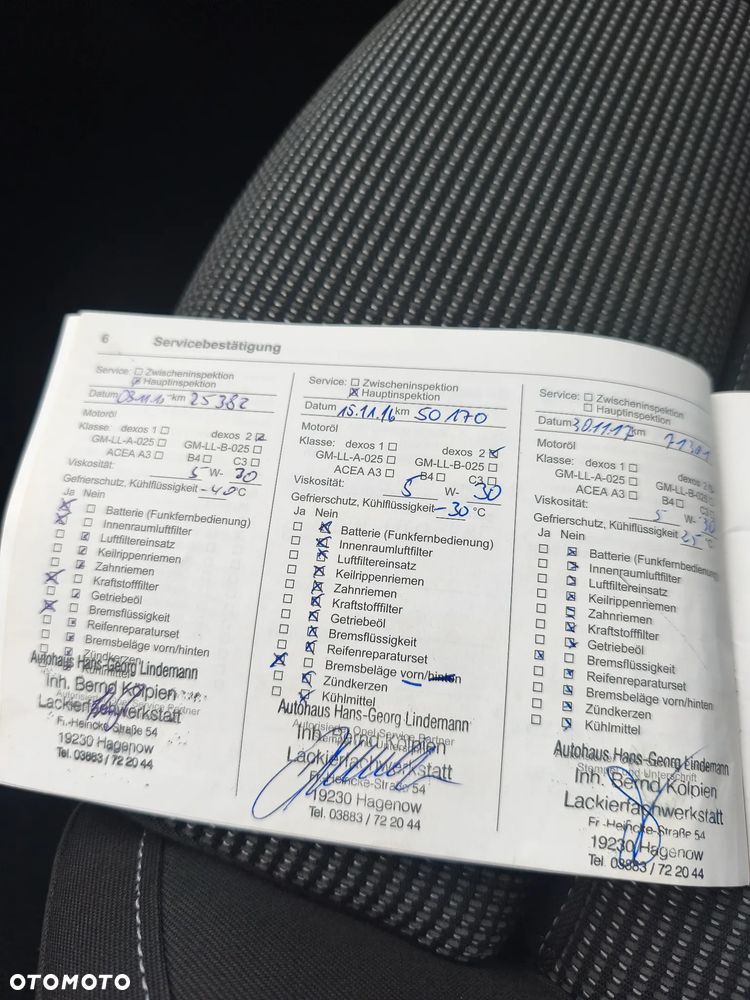 6 Servicebestätigung
Service: Zwischeninspektion
Hauptinspektion
Datum km 25382
Motoröl
Klasse: dexos 1 dexos 2
GM-LL-A-025 GM-LL-B-025
ACEA A3 B4 C3
Viskosität: 5 W- 30
Gefrierschutz, Kühlflüssigkeit -40 °C
Ja Nein
Batterie (Funkfernbedienung)
Innenraumluftfilter
Luftfiltereinsatz
Keilrippenriemen
Zahnriemen
Kraftstofffilter
Getriebeöl
Bremsflüssigkeit
Reifenreparaturset
Bremsbeläge vorn/hinten
Zündkerzen
Kühlmittel
Autohaus Hans-Georg Lindemann
Inh. Bernd Kolpien
Lackierfachwerkstatt
Fr.-Heincke-Straße 54
19230 Hagenow
Tel. 03883 / 72 20 44
Service: Zwischeninspektion
Hauptinspektion
Datum 15.11.16 km 50170
Motoröl
Klasse: dexos 1 dexos 2
GM-LL-A-025 GM-LL-B-025
ACEA A3 B4 C3
Viskosität: 5 W- 30
Gefrierschutz, Kühlflüssigkeit -30 °C
Ja Nein
Batterie (Funkfernbedienung)
Innenraumluftfilter
Luftfiltereinsatz
Keilrippenriemen
Zahnriemen
Kraftstofffilter
Getriebeöl
Bremsflüssigkeit
Reifenreparaturset
Bremsbeläge vorn/hinten
Zündkerzen
Kühlmittel
Autohaus Hans-Georg Lindemann
Autorisierter Opel Service Partner
Inh. Bernd Kolpien
Lackierfachwerkstatt
Fr.-Heincke-Straße 54
19230 Hagenow
Tel. 03883 / 72 20 44
Service: Zwischeninspektion
Hauptinspektion
Datum 30.11.17 km
Motoröl
Klasse: dexos 1 dexos 2
GM-LL-A-025 GM-LL-B-025
ACEA A3 B4 C3
Viskosität: 5 W- 30
Gefrierschutz, Kühlflüssigkeit 25 °C
Ja Nein
Batterie (Funkfernbedienung
Innenraumluftfilter
Luftfiltereinsatz
Keilrippenriemen
Zahnriemen
Kraftstofffilter
Getriebeöl
Bremsflüssigkeit
Reifenreparaturset
Bremsbeläge vorn/hinten
Zündkerzen
Kühlmittel
Autohaus Hans-Georg Lindemann
Stempel und Unterschrift
Inh. Bernd Kolpien
Lackierfachwerkstatt
Fr.-Heincke-Straße 54
19230 Hagenow
Tel. 03883 / 72 20 44
OTOMOTO